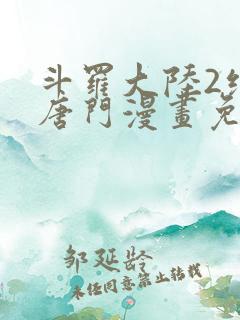 斗羅大陸2
唐門漫畫免
邹延龄
未经同意禁止转载